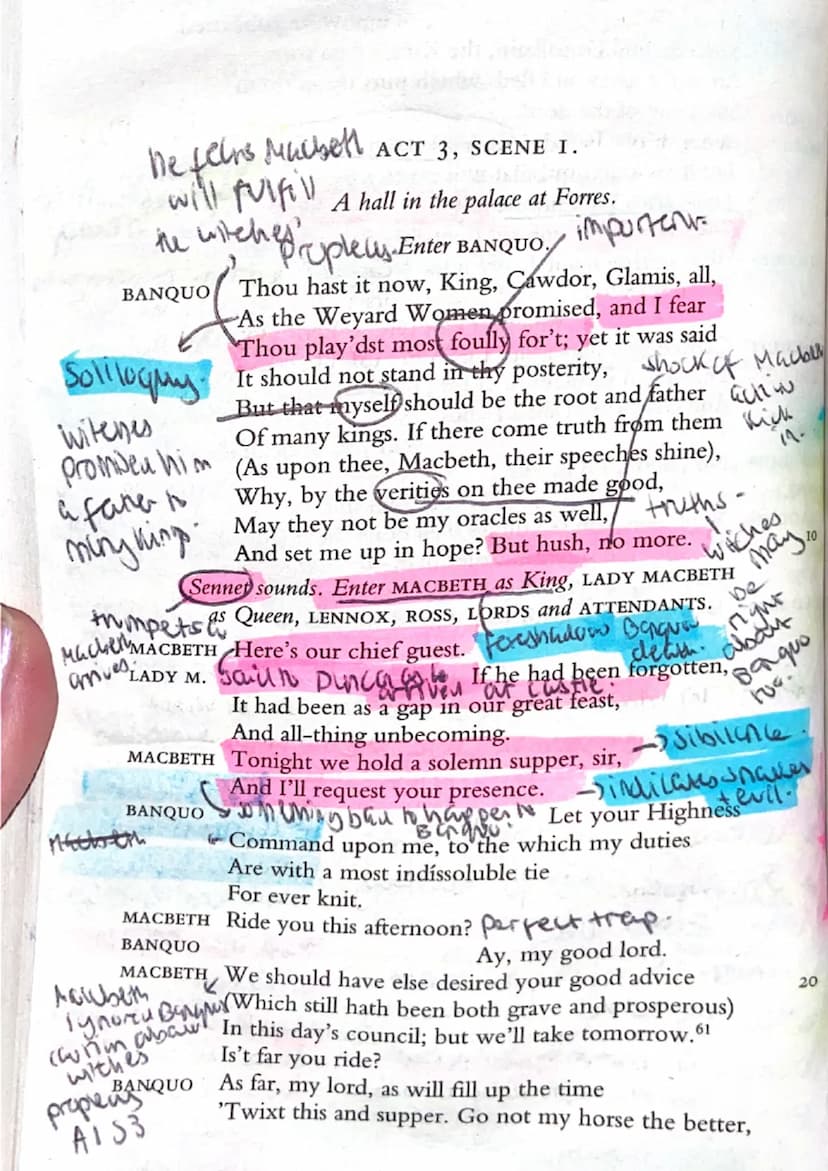 he fears Macbeth
ACT 3, SCENE 1.
will fulfill
A hall in the palace at Forres.
the witches'
important.
Enter BANQUO.
BANQUO Thou hast it now, King, Cawdor, Glamis, all,
As the Weyard Women promised, and I fear
Thou play'dst most foully for't; yet it was said
Soliloquy.
It should not stand in thy posterity,
shock of Macbeth
But that myself should be the root and father
kick
in.
witches
Of many kings. If there come truth from them
promised him
(As upon thee, Macbeth, their speeches shine),
Why, by the verities on thee made good,
truths -
May they not be my oracles as well,
And set me up in hope? But hush, no more.
witches
may
be
right
about
Banquo
too.
10
Sennet sounds. Enter MACBETH as King, LADY MACBETH
as Queen, LENNOX, ROSS, LORDS and ATTENDANTS.
trumpets
Macbeth
arrives.
MACBETH Here's our chief guest.
foreshadow Banquo
death.
LADY M. If he had been forgotten,
said to Duncan
arrived at castle.
It had been as a gap in our great feast,
And all-thing unbecoming.
MACBETH Tonight we hold a solemn supper, sir,
→ sibilance.
And I'll request your presence.
→ indicates snakes
+ evil.
something bad to happen to
Banquo.
BANQUO Let your Highness
Command upon me, to the which my duties
Are with a most indíssoluble tie
For ever knit.
MACBETH Ride you this afternoon?
perfect trap.
BANQUO Ay, my good lord.
MACBETH We should have else desired your good advice
20
(Which still hath been both grave and prosperous)
In this day's council; but we'll take tomorrow.61
Is't far you ride?
Macbeth
witches
A1 S3
BANQUO As far, my lord, as will fill up the time
'Twixt this and supper. Go not my horse the better,